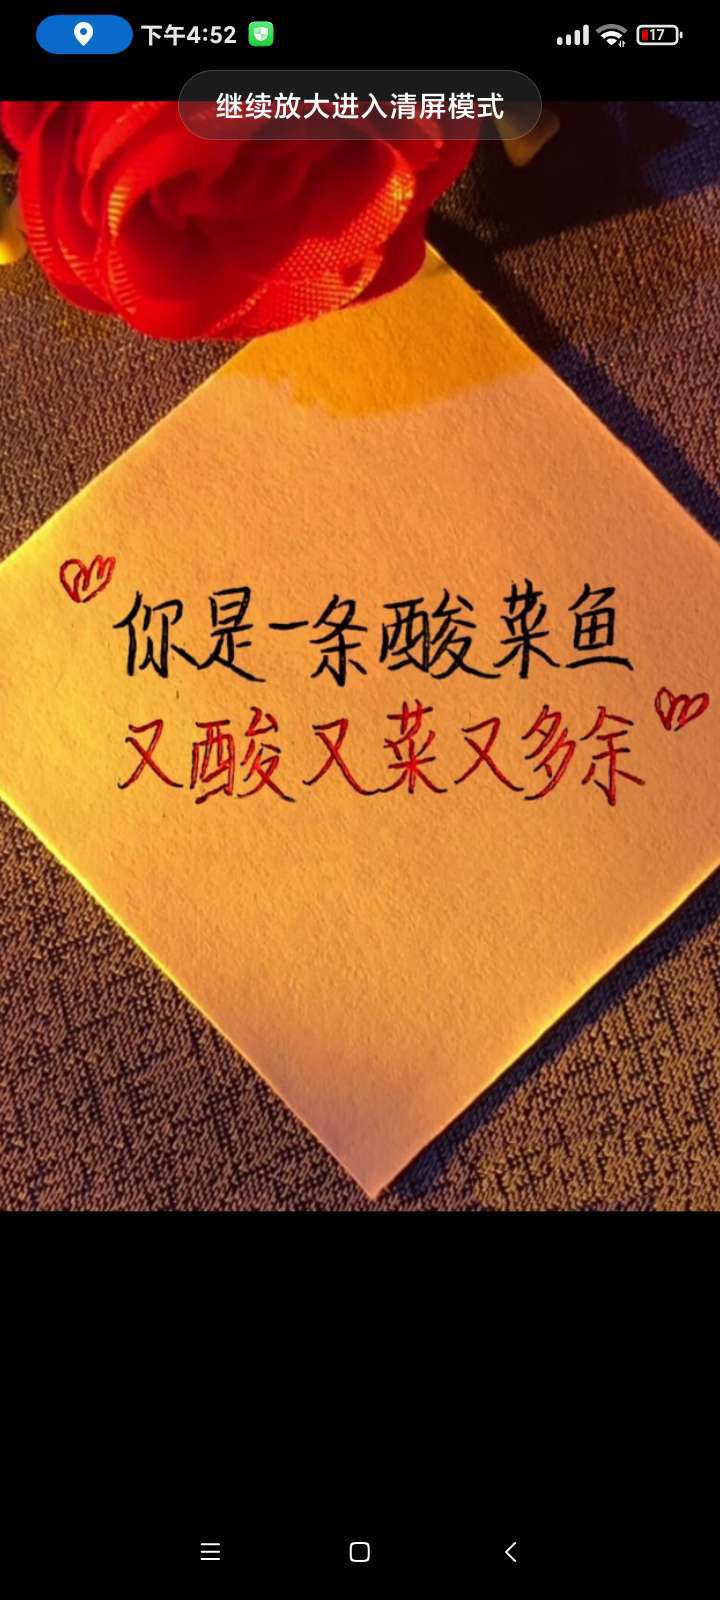 下午4:52
17
继续放大进入清屏模式
你是一条酸菜鱼
又酸又菜又多余